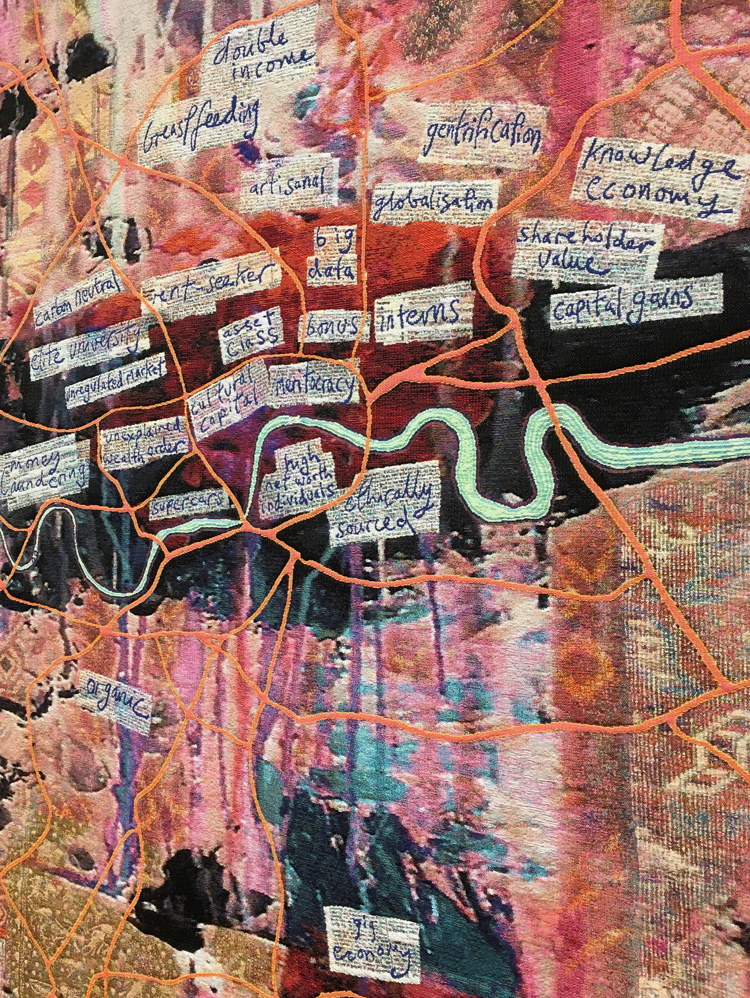 double
income
breastfeeding
gentrification
knowledge
economy
artisanal
globalisation
big
data
shareholder
value
carbon neutral
rent-seeker
capital gains
elite university
asset
class
bonus
interns
unregulated market
cultural
capital
meritocracy
unexplained
wealth order
money
laundering
supercars
high
net worth
individuals
ethically
sourced
organic
gig
economy